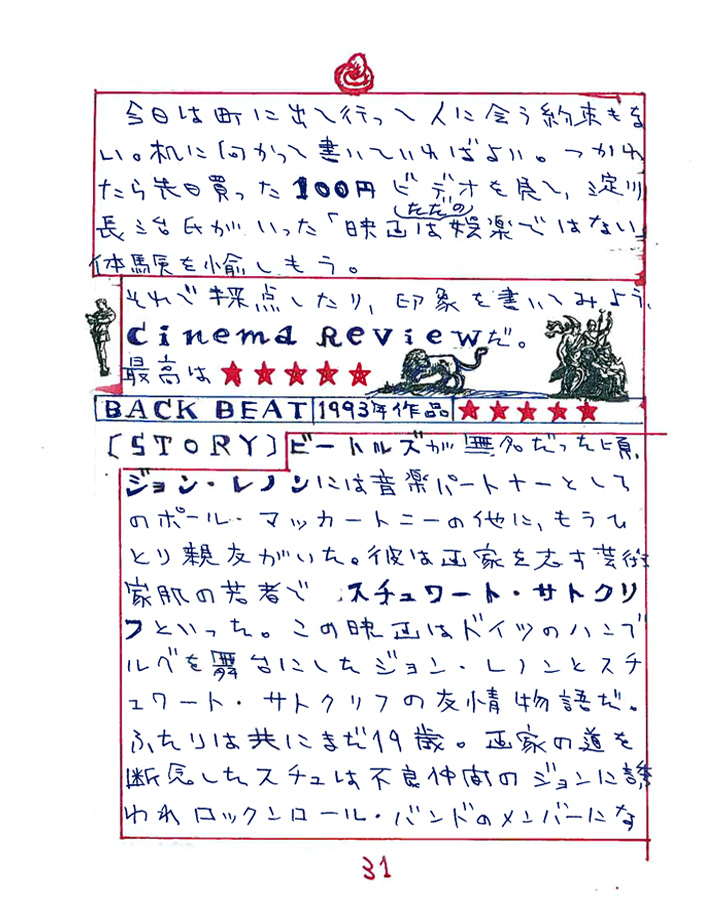 今日は町に出て行って人に会う約束もな
い。机に向かって書いていればよい。つかれ
たら先日買った100円ビデオを見て、淀川
長治氏がいった「映画はただの娯楽ではない」
体験を愉しもう。
それで採点したり、印象を書いてみよう。
Cinema Reviewだ。
最高は★★★★★
BACK BEAT 1993年作品 ★★★★★
〔STORY〕ビートルズが無名だった頃、
ジョン・レノンには音楽パートナーとして
のポール・マッカートニーの他に、もうひ
とり親友がいた。彼は画家を志す芸術
家肌の若者で スチュワート・サトクリ
フといった。この映画はドイツのハンブ
ルベを舞台にしたジョン・レノンとスチ
ュワート・サトクリフの友情物語だ。
ふたりは共にまだ19歳。画家の道を
断念したスチュは不良仲間のジョンに誘
われロックンロール・バンドのメンバーにな
31